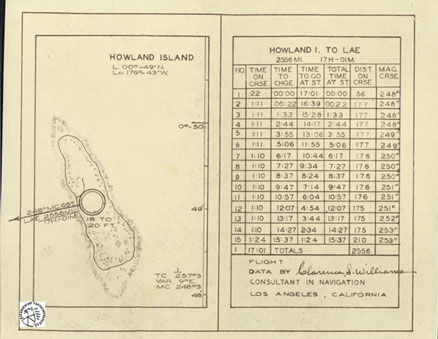 HOWLAND ISLAND
L. 00°-49'N
Lo. 176°-43'W.
0°-50'
49'
18 TO
20 FT.
TC 257°3
VAR. 9°E
MC 248°3
48'
HOWLAND I. TO LAE
2556 MI. 17H-01M.
NO TIME ON CRSE. TIME TO CHGE. TIME TO GO AT ST. TOTAL TIME AT ST. DIST. ON CRSE. MAG. CRSE.
1 :22 00:00 17:01 00:00 56 248°
2 1:11 00:22 16:39 00:22 177 248°
3 1:11 1:33 15:28 1:33 177 248°
4 1:11 2:44 14:17 2:44 177 248°
5 1:11 3:55 13:06 3:55 177 249°
6 1:11 5:06 11:55 5:06 177 249°
7 1:10 6:17 10:44 6:17 176 250°
8 1:10 7:27 9:34 7:27 176 250°
9 1:10 8:37 8:24 8:37 176 250°
10 1:10 9:47 7:14 9:47 176 251°
11 1:10 10:57 6:04 10:57 176 251°
12 1:10 12:07 4:54 12:07 175 251°
13 1:10 13:17 3:44 13:17 175 252°
14 1:10 14:27 2:34 14:27 175 253°
15 1:24 15:37 1:24 15:37 210 253°
17:01 TOTALS 2556
FLIGHT
DATA BY Clarence S. Williams
CONSULTANT IN NAVIGATION
LOS ANGELES, CALIFORNIA